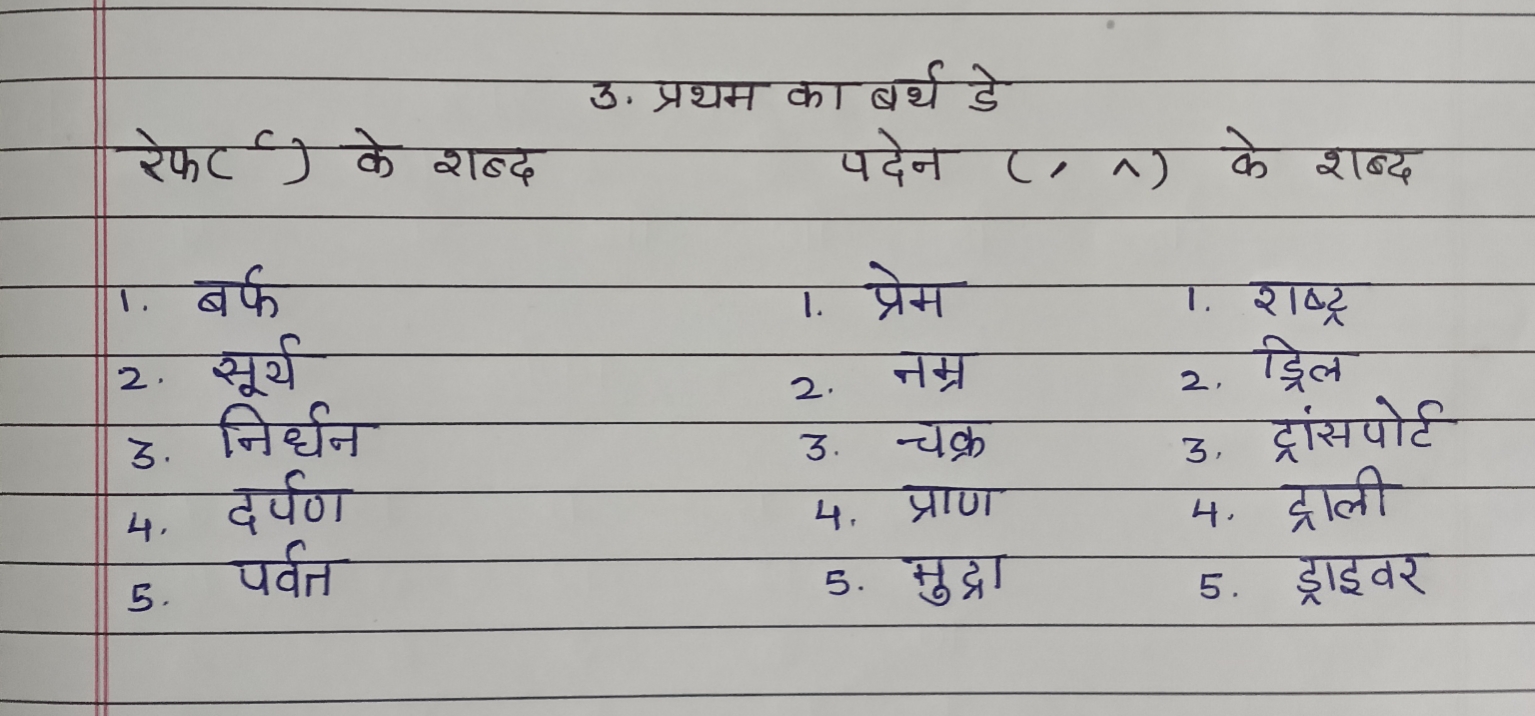 3. प्रथम का बर्थ डे
रेफ( र्) के शब्द पदेन ( ्र ^) के शब्द
1. बर्फ 1. प्रेम 1. राष्ट्र
2. सूर्य 2. नम्र 2. ड्रिल
3. निर्धन 3. चक्र 3. ट्रांसपोर्ट
4. दर्पण 4. प्राण 4. ट्राली
5. पर्वत 5. मुद्रा 5. ड्राइवर